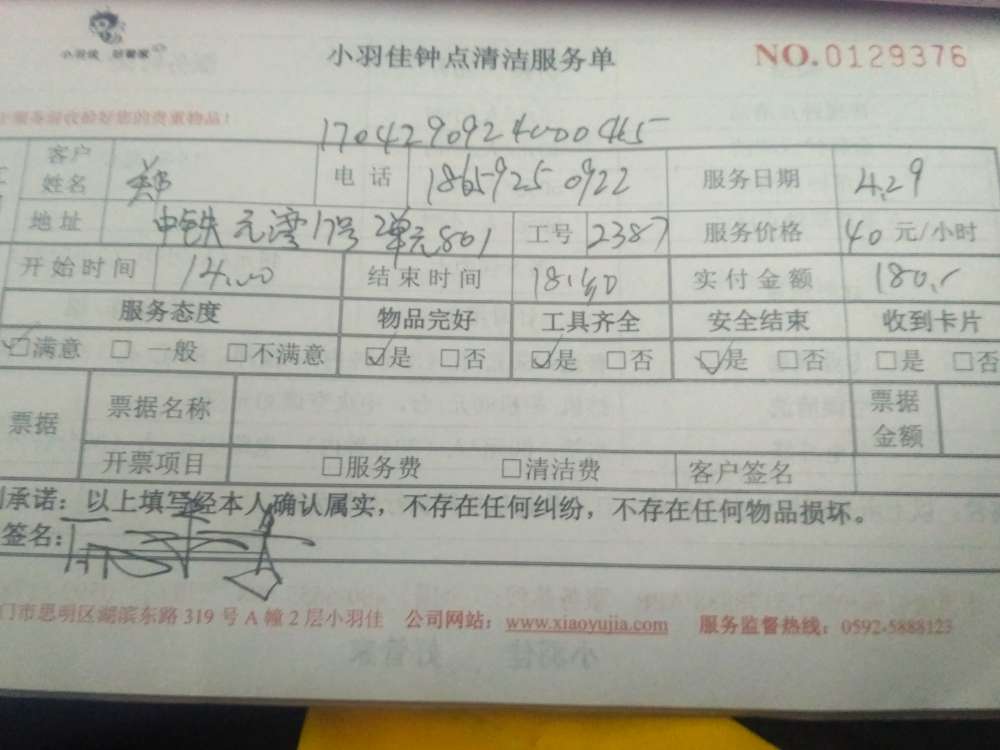 小羽佳 好管家
小羽佳钟点清洁服务单
NO.0129376
服务前收拾好您的贵重物品!
1704290924000465
客户姓名 郑 电话 18659250922 服务日期 4.29
地址 中铁元湾17号2单元801 工号 2387 服务价格 40元/小时
开始时间 14:00 结束时间 18:40 实付金额 180.
服务态度 物品完好 工具齐全 安全结束 收到卡片
☑满意 □一般 □不满意 ☑是 □否 ☑是 □否 ☑是 □否 □是 □否
票据 票据名称 票据金额
开票项目 □服务费 □清洁费 客户签名
承诺：以上填写经本人确认属实，不存在任何纠纷，不存在任何物品损坏。
签名：
门市思明区湖滨东路319号A幢2层小羽佳 公司网站：www.xiaoyujia.com 服务监督热线：0592-5888123